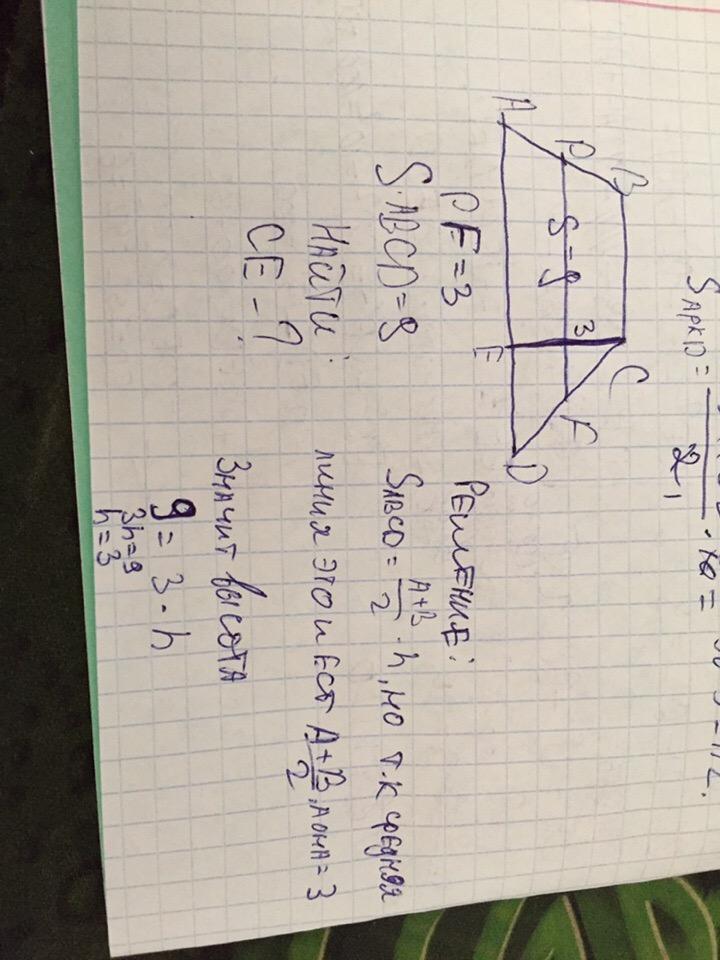 SAPKD =
2
B
C
P
S=9
3
F
A
E
D
PF=3
S ABCD=9
НАЙТИ:
CE - ?
РЕШЕНИЕ:
SABCD = A+B/2 · h, но т.к средняя
линия это и есть A+B/2, а она = 3
значит высота
9 = 3 · h
3h=9
h=3